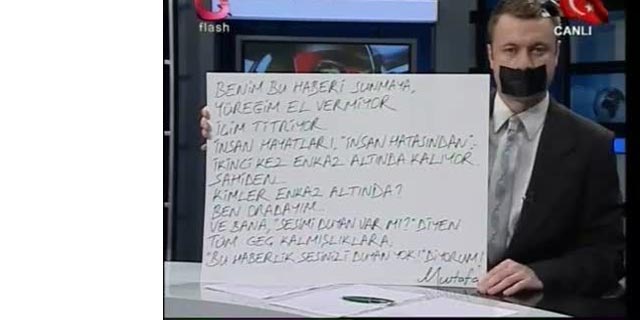 flash
CANLI
BENİM BU HABERİ SUNMAYA,
YÜREĞİM EL VERMİYOR
İÇİM TİTRİYOR
İNSAN HAYATLARI, "İNSAN HATASINDAN";
İKİNCİ KEZ ENKAZ ALTINDA KALIYOR.
SAHİDEN...
KİMLER ENKAZ ALTINDA?
BEN ORADAYIM...
VE BANA, "SESİMİ DUYAN VAR MI?" DİYEN
TÜM GEÇ KALMIŞLIKLARA,
"BU HABERLİK SESİNİZİ DUYAN YOK!" DİYORUM!
Mustafa